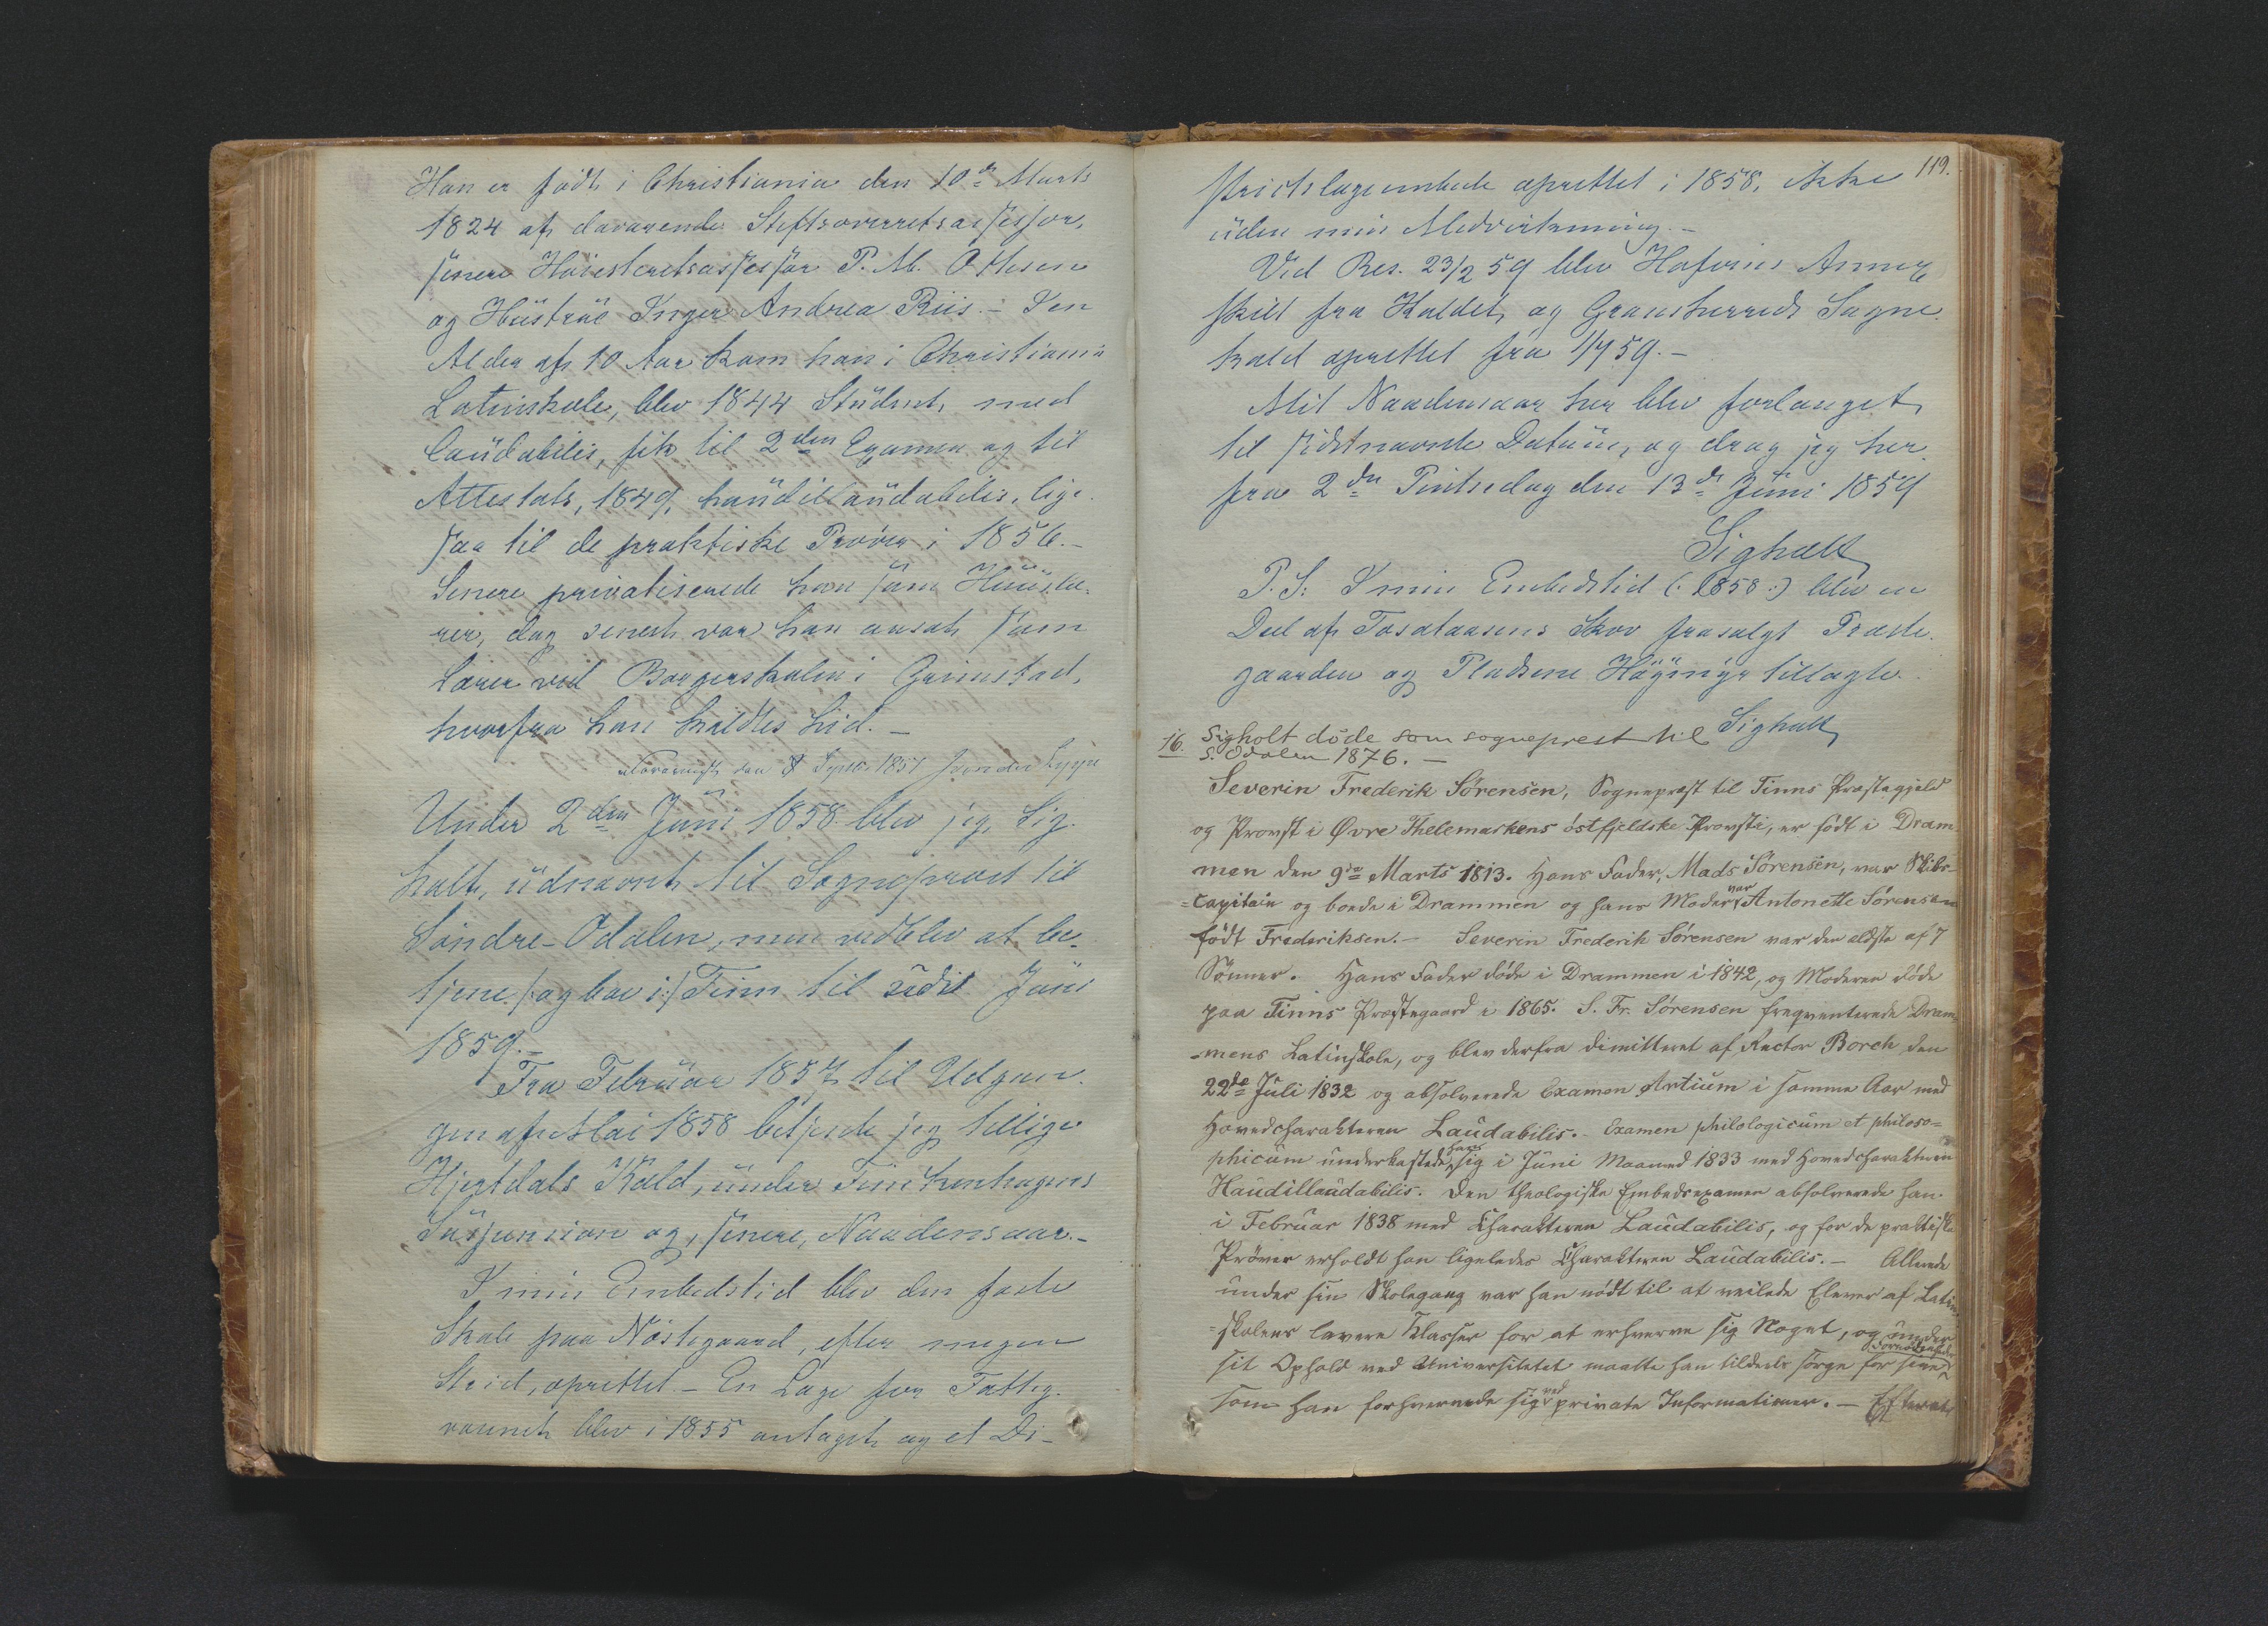 Han er født i Christiania den 10de Marts
1824 af daværende Stiftsoverretsassessor,
senere Høiesteretsassessor P. M. Ottesen
og Hüstrüe Inger Andrea Riis. – I en
Alder af 10 Aar kom han i Christiania
Latinskole, blev 1844 Stüdent, med
laüdabilis, fik til 2den Examen og til
Attestats, 1849, haüdillaüdabilis, lige-
saa til de praktiske Prøver i 1856.–
Senere privatiserede han som Hüüslæ-
rer, dog senest var han ansat som
Lærer ved Borgerskolen i Grimstad,
hvorfra han kaldtes hid. –
den Septbr. 1857
Under 2den Jüni 1858 blev jeg, Sig-
holt, üdnævnt til Sognepræst til
Søndre-Odalen, men vedblev at be-
tjene /: og boe i :/ Tinn til Jüni
1859.–
Fra Februar 1857 til Udgan-
gen af Mai 1858 betjente jeg tillige
Hjertdals Kald, ünder Finckenhagens
Süspension og, senere, Naadensaar.–
I min Embedstid blev den faste
Skole paa Næstegaard, efter megen
Strid, oprettet. – En Læge for Fattig-
væsenet blev i 1855 antaget og et Di-
119.
striktslægeembede oprettet i 1858, ikke
üden min Medvirkning.–
Ved Res. 23/2 59 blev Hovins Annex
skilt fra Kaldet, og Gransherreds Sogne-
kald oprettet fra 1/4 59.–
Mit Naadensaar her blev forlænget
til sidstnævnte Datüm, og drog jeg her-
fra 2den Pintsedag den 13de Jüni 1859
Sigholt
P. S: I min Embedstid (: 1858 :) blev en
Deel af Skov frasalgt Præste-
gaarden og Pladsene tillagte.
Sigholt
16. Sigholt döde som sogneprest til
S. Odalen 1876. –
Severin Frederik Sørensen, Sognepræst til Tinns Præstegjeld
og Provst i Øvre Thelemarkens östfjeldske Provsti, er født i Dram-
men den 9de Marts 1813. Hans Fader, Mads Sörensen, var Skibs-
=Capitain og boede i Drammen og hans Moder var Antonette Sørensen
født Frederiksen.– Severin Frederik Sørensen var den ældste af 7
Sönner. Hans Fader døde i Drammen i 1842, og Moderen döde
paa Tinns Præstegaard i 1865. S. Fr. Sørensen freqventerede Dram=
=mens Latinskole, og blev derfra dimitteret af Rector Borch den
22de Jüli 1832 og absolverede Examen Artiüm i samme Aar med
Hovedcharakteren Laüdabilis.– Examen philologicüm et philoso=
phicüm ünderkastede han sig i Jüni Maaned 1833 med Hovedcharakteren
Haüdillaüdabilis. Den theologiske Embedsexamen absolverede han
i Februar 1838 med Charakteren Laüdabilis, og for de praktiske
Pröver erholdt han ligeledes Charakteren Laüdabilis.– Allerede
ünder sin Skolegang var han nødt til at veilede Elever af Latin=
=skolens lavere Klasser for at erhverve sig Noget, og ünder
sit Ophold ved Universitetet maatte han tildeels sørge for sine Fornødenheder
som han forhvervede sig ved private Informationer.– Efterat